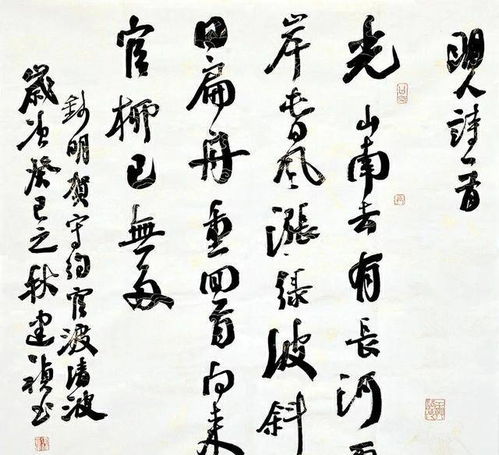 明人詩一首
光山南去有長河两
岸春風漲綠波斜
日扁舟重回首向来
官柳已無多
錄明賀守約官渡清波
歲次癸巳之秋建禎书